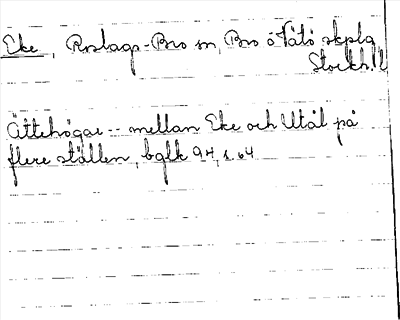 Eke, Roslags-Bro sn, Bro o Vätö skplg
Stockh. l
Ättehögar -- mellan Eke och Utål på
flere ställen, bglk 94, s. 64